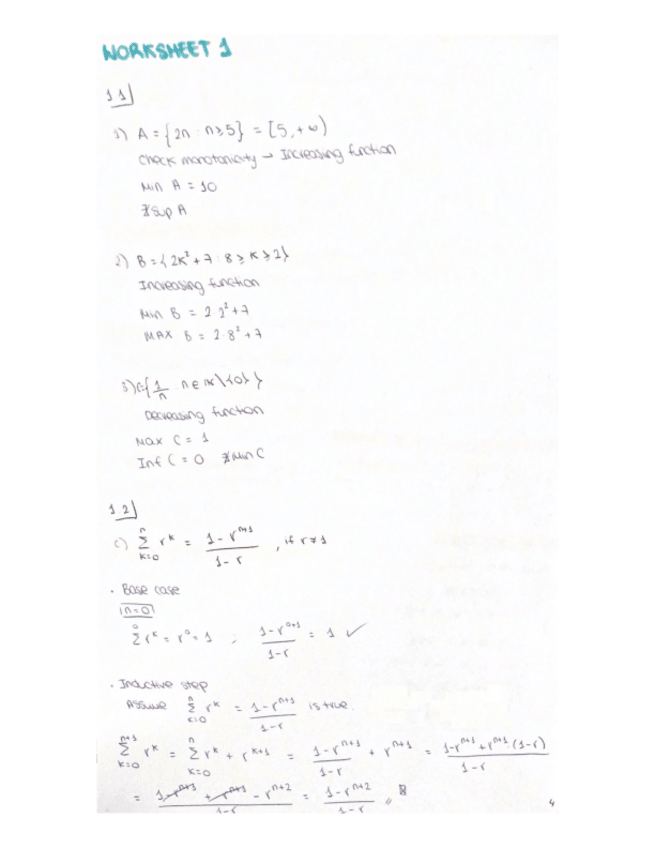 WORKSHEET 1
1.1
1) A = {2n : n ≥ 5} = [5, +∞)
Check monotonicity → Increasing function
Min A = 10
∄ Sup A
2) B = {2k² + 7 : 8 ≥ k ≥ 2}
Increasing function
Min B = 2·2² + 7
MAX B = 2·8² + 7
3) C = {1/n n ∈ ℕ\{0}}
Decreasing function
Max C = 1
Inf C = 0 ∄ Min C
1.2
c) Σ_{k=0}^{n} r^k = (1 - r^{n+1})/(1 - r), if r ≠ 1
· Base case
n=0
Σ^{0} r^k = r^0 = 1 ; (1 - r^{0+1})/(1 - r) = 1 ✓
· Inductive step
Assume Σ_{k=0}^{n} r^k = (1 - r^{n+1})/(1 - r) is true.
Σ_{k=0}^{n+1} r^k = Σ_{k=0}^{n} r^k + r^{k+1} = (1 - r^{n+1})/(1 - r) + r^{n+1} = (1 - r^{n+1} + r^{n+1}·(1-r))/(1 - r)
= (1 - r^{n+1} + r^{n+1} - r^{n+2})/(1 - r) = (1 - r^{n+2})/(1 - r)
4